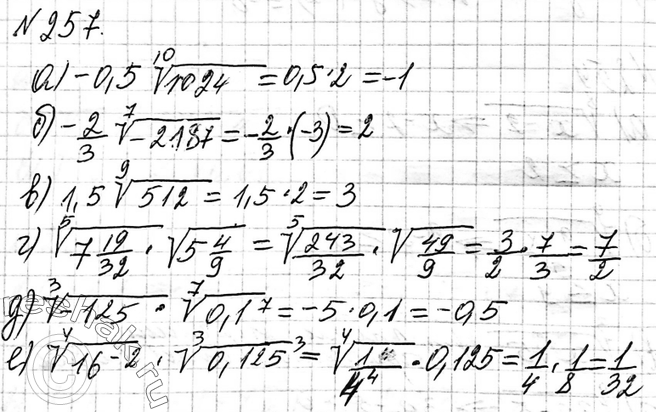 №257.
а) -0,5 \sqrt[10]{1024} = 0,5·2 = -1
б) -\frac{2}{3} \sqrt[7]{-2187} = -\frac{2}{3}·(-3) = 2
в) 1,5 \sqrt[9]{512} = 1,5·2 = 3
г) \sqrt[5]{7\frac{19}{32}} · \sqrt{5\frac{4}{9}} = \sqrt[5]{\frac{243}{32}} · \sqrt{\frac{49}{9}} = \frac{3}{2}·\frac{7}{3} = \frac{7}{2}
д) \sqrt[3]{-125} · \sqrt[7]{0,1^7} = -5·0,1 = -0,5
е) \sqrt[4]{16^{-2}} · \sqrt[3]{0,125^3} = \sqrt[4]{\frac{1^4}{4^4}}·0,125 = \frac{1}{4}·\frac{1}{8} = \frac{1}{32}